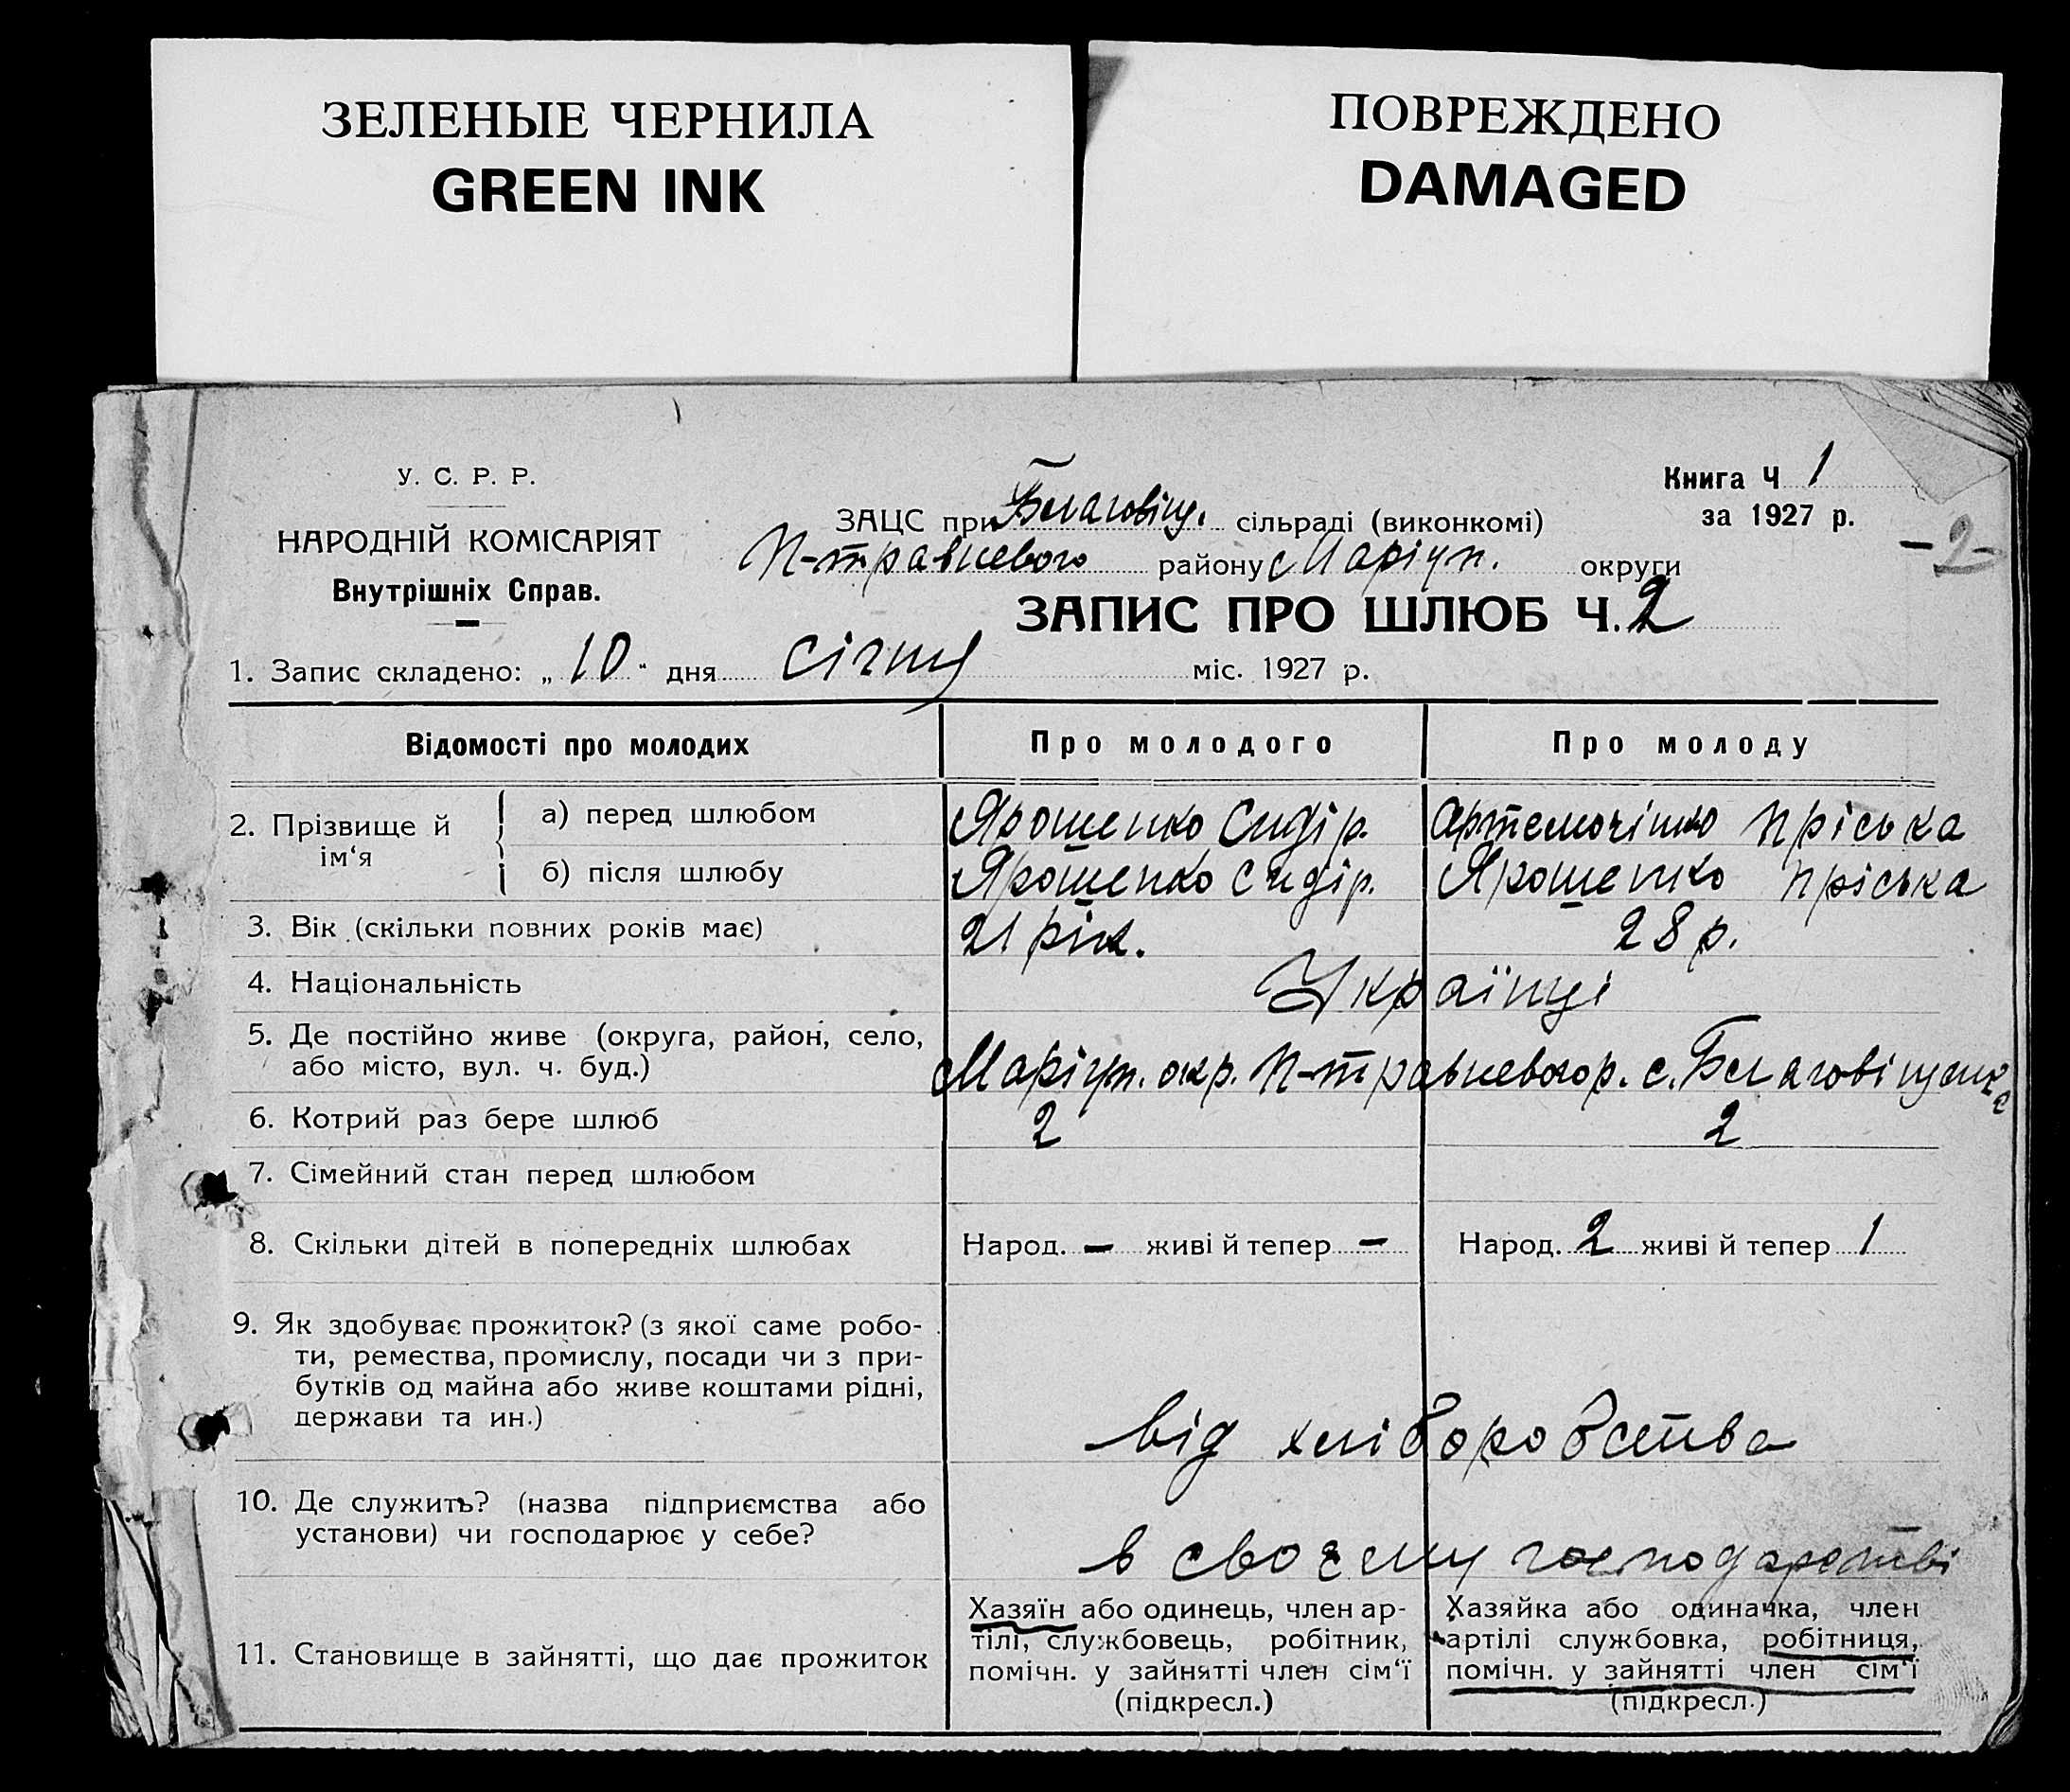 ЗЕЛЕНЫЕ ЧЕРНИЛА
GREEN INK
ПОВРЕЖДЕНО
DAMAGED
У. С. Р. Р.
НАРОДНІЙ КОМІСАРІЯТ
Внутрішніх Справ.
Книга Ч 1
за 1927 р.
-2-
ЗАЦС при Благовіщ. сільраді (виконкомі)
П-травневого району Маріуп. округи
ЗАПИС ПРО ШЛЮБ Ч. 2
1. Запис складено: „ 10 " дня січня міс. 1927 р.
Відомості про молодих Про молодого Про молоду
2. Прізвище й ім'я
а) перед шлюбом Ярошенко Сидір. Пріська
б) після шлюбу Ярошенко Сидір. Ярошенко Пріська
3. Вік (скільки повних років має) 21 рік. 28 р.
4. Національність Українці
5. Де постійно живе (округа, район, село,
або місто, вул. ч. буд.) Маріуп. окр. П-травневого р. с. Благовіщенське
6. Котрий раз бере шлюб 2 2
7. Сімейний стан перед шлюбом
8. Скільки дітей в попередніх шлюбах Народ. - живі й тепер - Народ. 2 живі й тепер 1
9. Як здобуває прожиток? (з якої саме робо-
ти, ремества, промислу, посади чи з при-
бутків од майна або живе коштами рідні,
держави та ин.) від хліборобства
10. Де служить? (назва підприємства або
установи) чи господарює у себе? в своєму господарстві
11. Становище в зайнятті, що дає прожиток
Хазяїн або одинець, член ар-
тілі, службовець, робітник,
помічн. у зайнятті член сім'ї
(підкресл.)
Хазяйка або одиначка, член
артілі службовка, робітниця,
помічн. у зайнятті член сім'ї
(підкресл.)